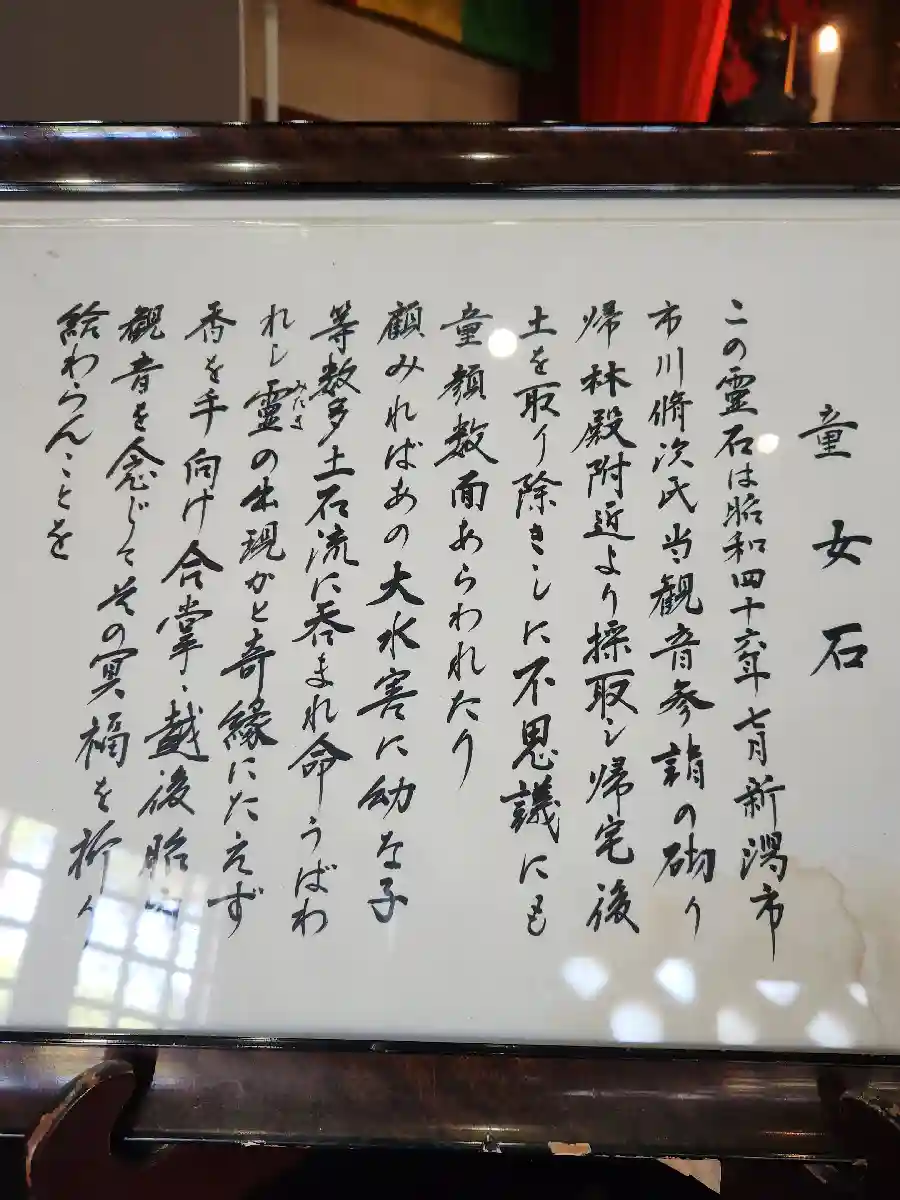 童女石
この霊石は昭和四十六年七月新潟市
市川脩次氏当観音参詣の砌り
帰林殿附近より採取し帰宅後
土を取り除きしに不思議にも
童顔数面あらわれたり
顧みればあの大水害に幼な子
等数多土石流に呑まれ命うばわ
れし霊の出現かと奇縁にたえず
みたま
香を手向け合掌、越後胎
観音を念じてその冥福を祈り
給わらんことを